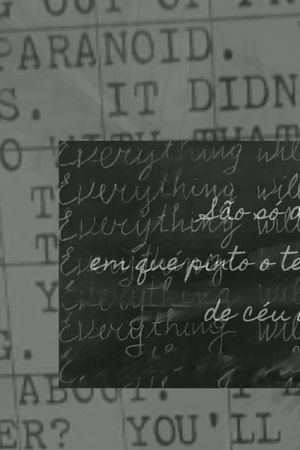 OUT OF
PARANOID.
S. IT DIDN
O WITH THAT
Everything will
Everything will
T
Everything will
São só a
T
Everything will
em que pinto o te
Y
Everything will
de céu
Everything will
G.
ABOUT.
ER? YOU'LL